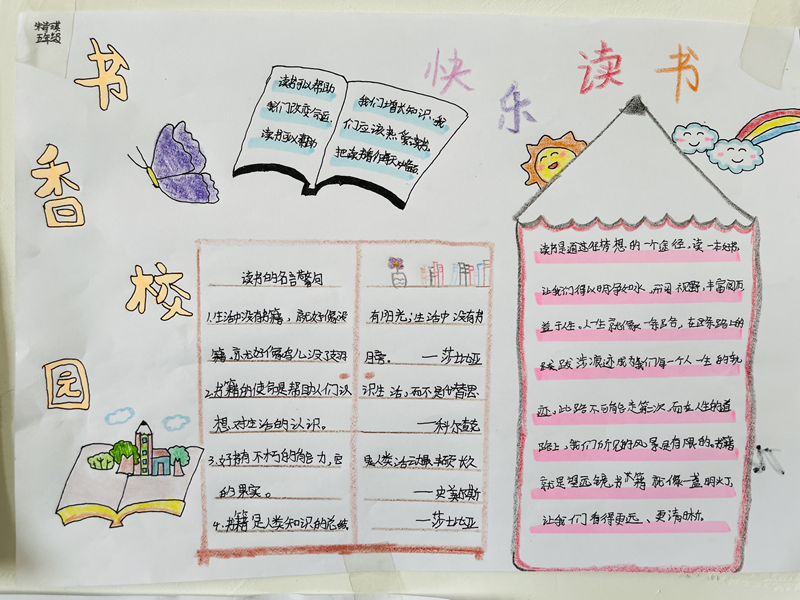 五年级
书香校园
快乐读书
读书可以帮助
我们改变命运
读书可以帮助
我们增长知识,我
们应该热爱读书
把读书当作每天
读书的名言警句
1.生活中没有书籍,就好像没
有阳光;生活中没有书
籍,就好像鸟儿没了翅
膀。 ——莎士比亚
2.书籍的使命是帮助人们认
识生活,而不是代替思
想对生活的认识。
——科尔查克
3.好书有不朽的能力,它
是人类活动果硕长久
的果实。
——史美尔斯
4.书籍是人类知识的总统
——莎士比亚
读书是通往梦想的一个途径,读一本好书
让我们得以明净如水,开阔视野,丰富阅历
益于人生。人一生就像一条路,在这条路上的
跋涉痕迹成为我们每一个人一生的轨
迹,此路不可能走第二次,而在人生的道
路上,我们所见的风景是有限的。书籍
就是望远镜,书籍就像一盏明灯,
让我们看得更远、更清晰。